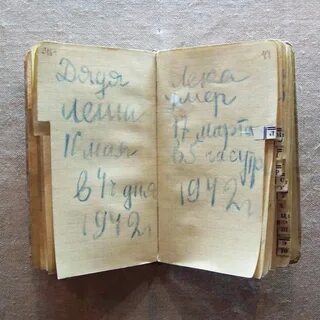 Дядя
Леша
10 мая
в 4ч дня
1942 г
Лека
умер
17 марта
в 5 час утр
1942 г